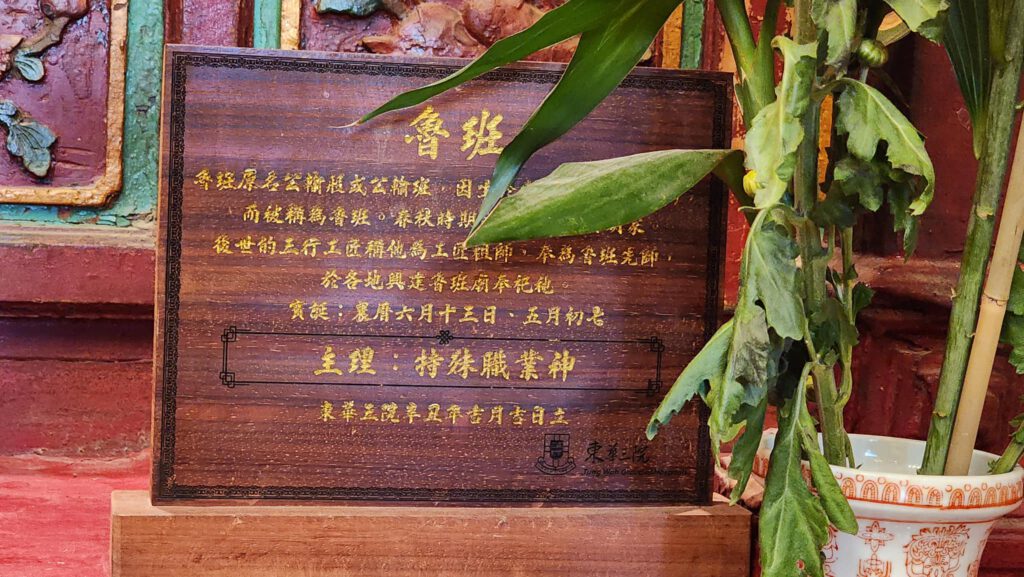 魯班
魯班原名公輸般或公輸班，因
而被稱為魯班。春秋時期
後世的三行工匠稱他為工匠祖師，奉為魯班先師，
於各地興建魯班廟奉祀他。
寶誕：農曆六月十三日、五月初七
主理：特殊職業神
東華三院辛丑年吉月吉日立
東華三院
Tung Wah Group of Hospitals